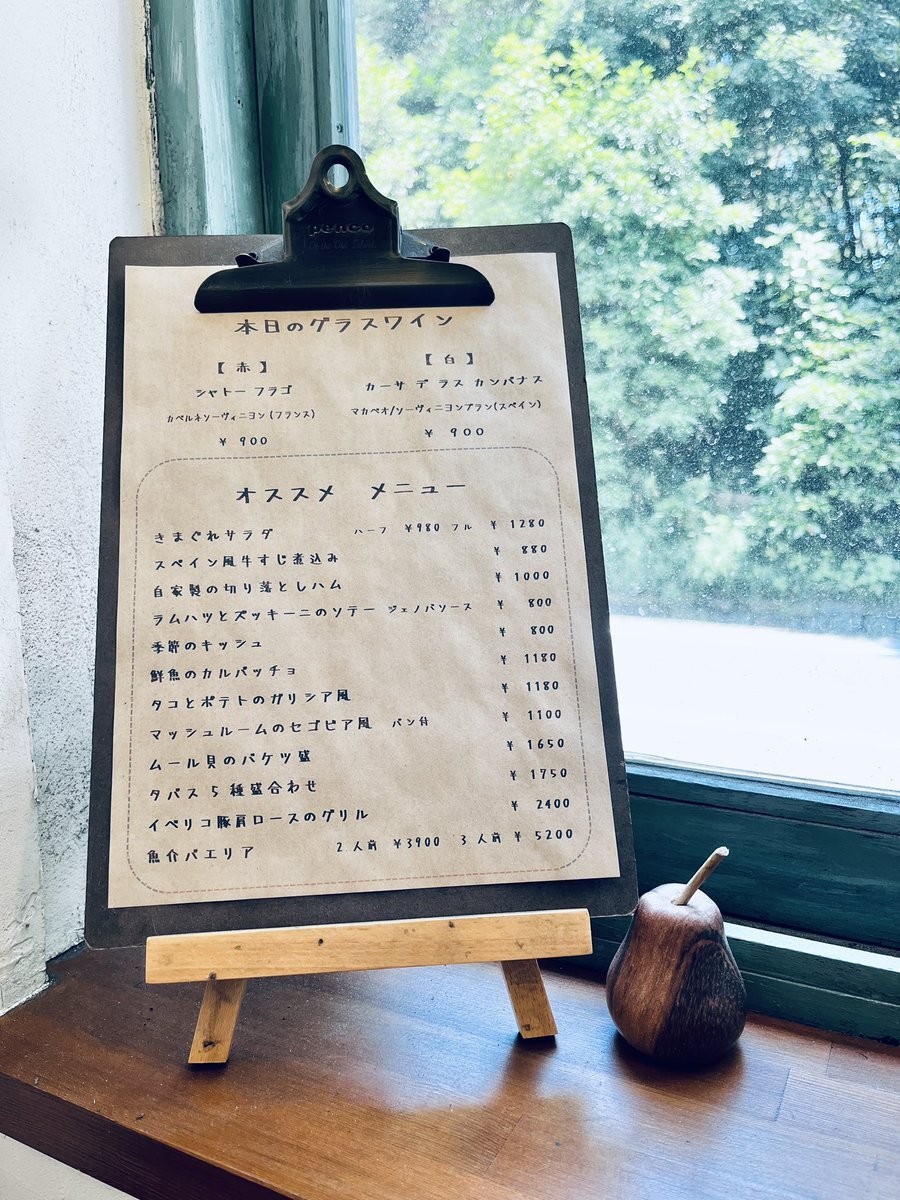 penco
本日のグラスワイン
【赤】
シャトー フラゴ
カベルネソーヴィニヨン(フランス)
¥ 900
【白】
カーサ デ ラス カンパナス
マカベオ/ソーヴィニヨンブラン(スペイン)
¥ 900
オススメ メニュー
きまぐれサラダ ハーフ ¥980 フル ¥ 1280
スペイン風牛すじ煮込み ¥ 880
自家製の切り落としハム ¥ 1000
ラムハツとズッキーニのソテー ジェノバソース ¥ 800
季節のキッシュ ¥ 800
鮮魚のカルパッチョ ¥ 1180
タコとポテトのガリシア風 ¥ 1180
マッシュルームのセゴビア風 パン付 ¥ 1100
ムール貝のバケツ盛 ¥ 1650
タパス 5 種盛合わせ ¥ 1750
イベリコ豚肩ロースのグリル ¥ 2400
魚介パエリア 2 人前 ¥3900 3 人前 ¥ 5200